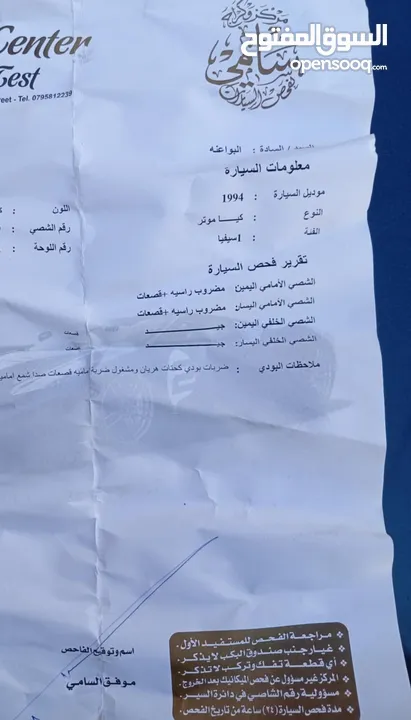 السوق المفتوح
opensooq.com
مركز وكراج
السامي
لفحص السيارات
Center
Test
reet - Tel. 0795812239
السادة : البواعنه
معلومات السيارة
موديل السيارة : 1994
اللون :
النوع : كيا موتر
رقم الشصي :
الفئة : اسيفيا
رقم اللوحة :
تقرير فحص السيارة
الشصي الأمامي اليمين: مضروب راسيه +قصعات
الشصي الأمامي اليسار: مضروب راسيه +قصعات
الشصي الخلفي اليمين: جيـــد قصعات
الشصي الخلفي اليسار: جيـــد قصعات
ملاحظات البودي : ضربات بودي كحتات هريان ومشغول ضربة جانبيه قصعات صدا شمع امامية
اسم وتوقيع الفاحص
موفق السامي
مراجعة الفحص للمستفيد الأول.
غيار جنب صندوق البكب لا يذكر.
أي قطعة تفك وتركب لا تذكر.
المركز غير مسؤول عن فحص الميكانيك بعد الخروج.
مسؤولية رقم الشاصي في دائرة السير.
مدة فحص السيارة (٢٤) ساعة من تاريخ الفحص.